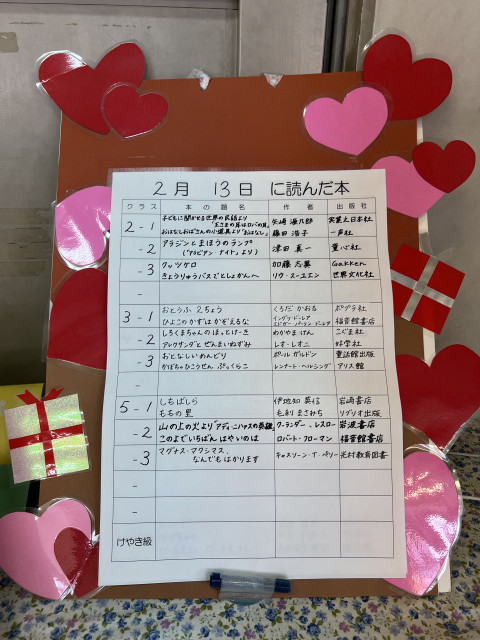 2月 13日 に読んだ本
クラス 本の題名 作者 出版社
2-1 子どもに聞かせる世界の民話より「王さまの耳はロバの耳」 矢崎 源九郎 実業之日本社
おはなしおばさんの小道具より「おはなし」 藤田 浩子 一声社
-2 アラジンとまほうのランプ(「アラビアン・ナイト」より) 津田 真一 童心社
-3 クッツケロ 加藤 志異 Gakken
きょうりゅうバスでとしょかんへ リウ・スーユエン 世界文化社
-
3-1 おとうふ2ちょう くろだ かおる ポプラ社
ひよこのかずはかぞえるな イングリ・ドーレア エドガー・パーリン・ドーレア 福音館書店
-2 しろくまちゃんのほっとけーき わかやま けん こぐま社
アレクサンダとぜんまいねずみ レオ・レオニ 好学社
-3 おとなしいめんどり ポール・ガルドン 童話館出版
かぼちゃひこうせんぷっくらこ レンナート・ヘルシング アリス館
-
5-1 しちばしら 伊地知 英信 岩崎書店
ももの里 毛利 まさみち リブリオ出版
-2 山の上の火より「アディ・ニハァスの英雄」 クーランダー、レスロー 岩波書店
このよでいちばんはやいのは ロバート・フローマン 福音館書店
-3 マグナス・マクシマス、なんでもはかります キャスリーン・T・ペリー 光村教育図書
-
-
けやき級